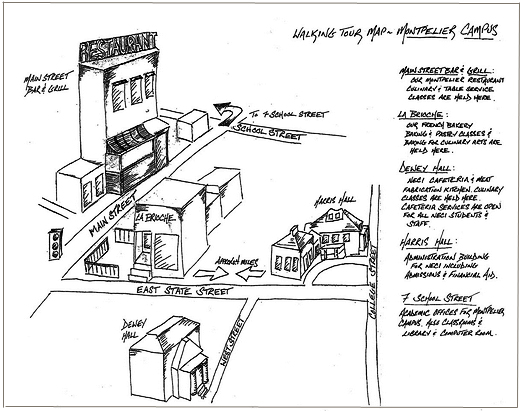 WALKING TOUR MAP ~ MONTPELIER CAMPUS
RESTAURANT
MAIN STREET
BAR & GRILL
TO 7 SCHOOL STREET
SCHOOL STREET
MAIN STREET
LA BRIOCHE
HARRIS HALL
MILES
EAST STATE STREET
COLLEGE STREET
WEST STREET
DEWEY
HALL
MAIN STREET BAR & GRILL:
OUR MONTPELIER RESTAURANT
CULINARY & TABLE SERVICE
CLASSES ARE HELD HERE.
LA BRIOCHE:
OUR FRENCH BAKERY
BAKING & PASTRY CLASSES &
BAKING FOR CULINARY ARTS ARE
HELD HERE.
DEWEY HALL:
NECI CAFETERIA & MEAT
FABRICATION KITCHEN. CULINARY
CLASSES ARE HELD HERE.
CAFETERIA SERVICES ARE OPEN
FOR ALL NECI STUDENTS &
STAFF.
HARRIS HALL:
ADMINISTRATION BUILDING
FOR NECI INCLUDING
ADMISSIONS & FINANCIAL AID.
7 SCHOOL STREET
ACADEMIC OFFICES FOR MONTPELIER
CAMPUS. ALSO CLASSROOMS &
LIBRARY & COMPUTER ROOM.